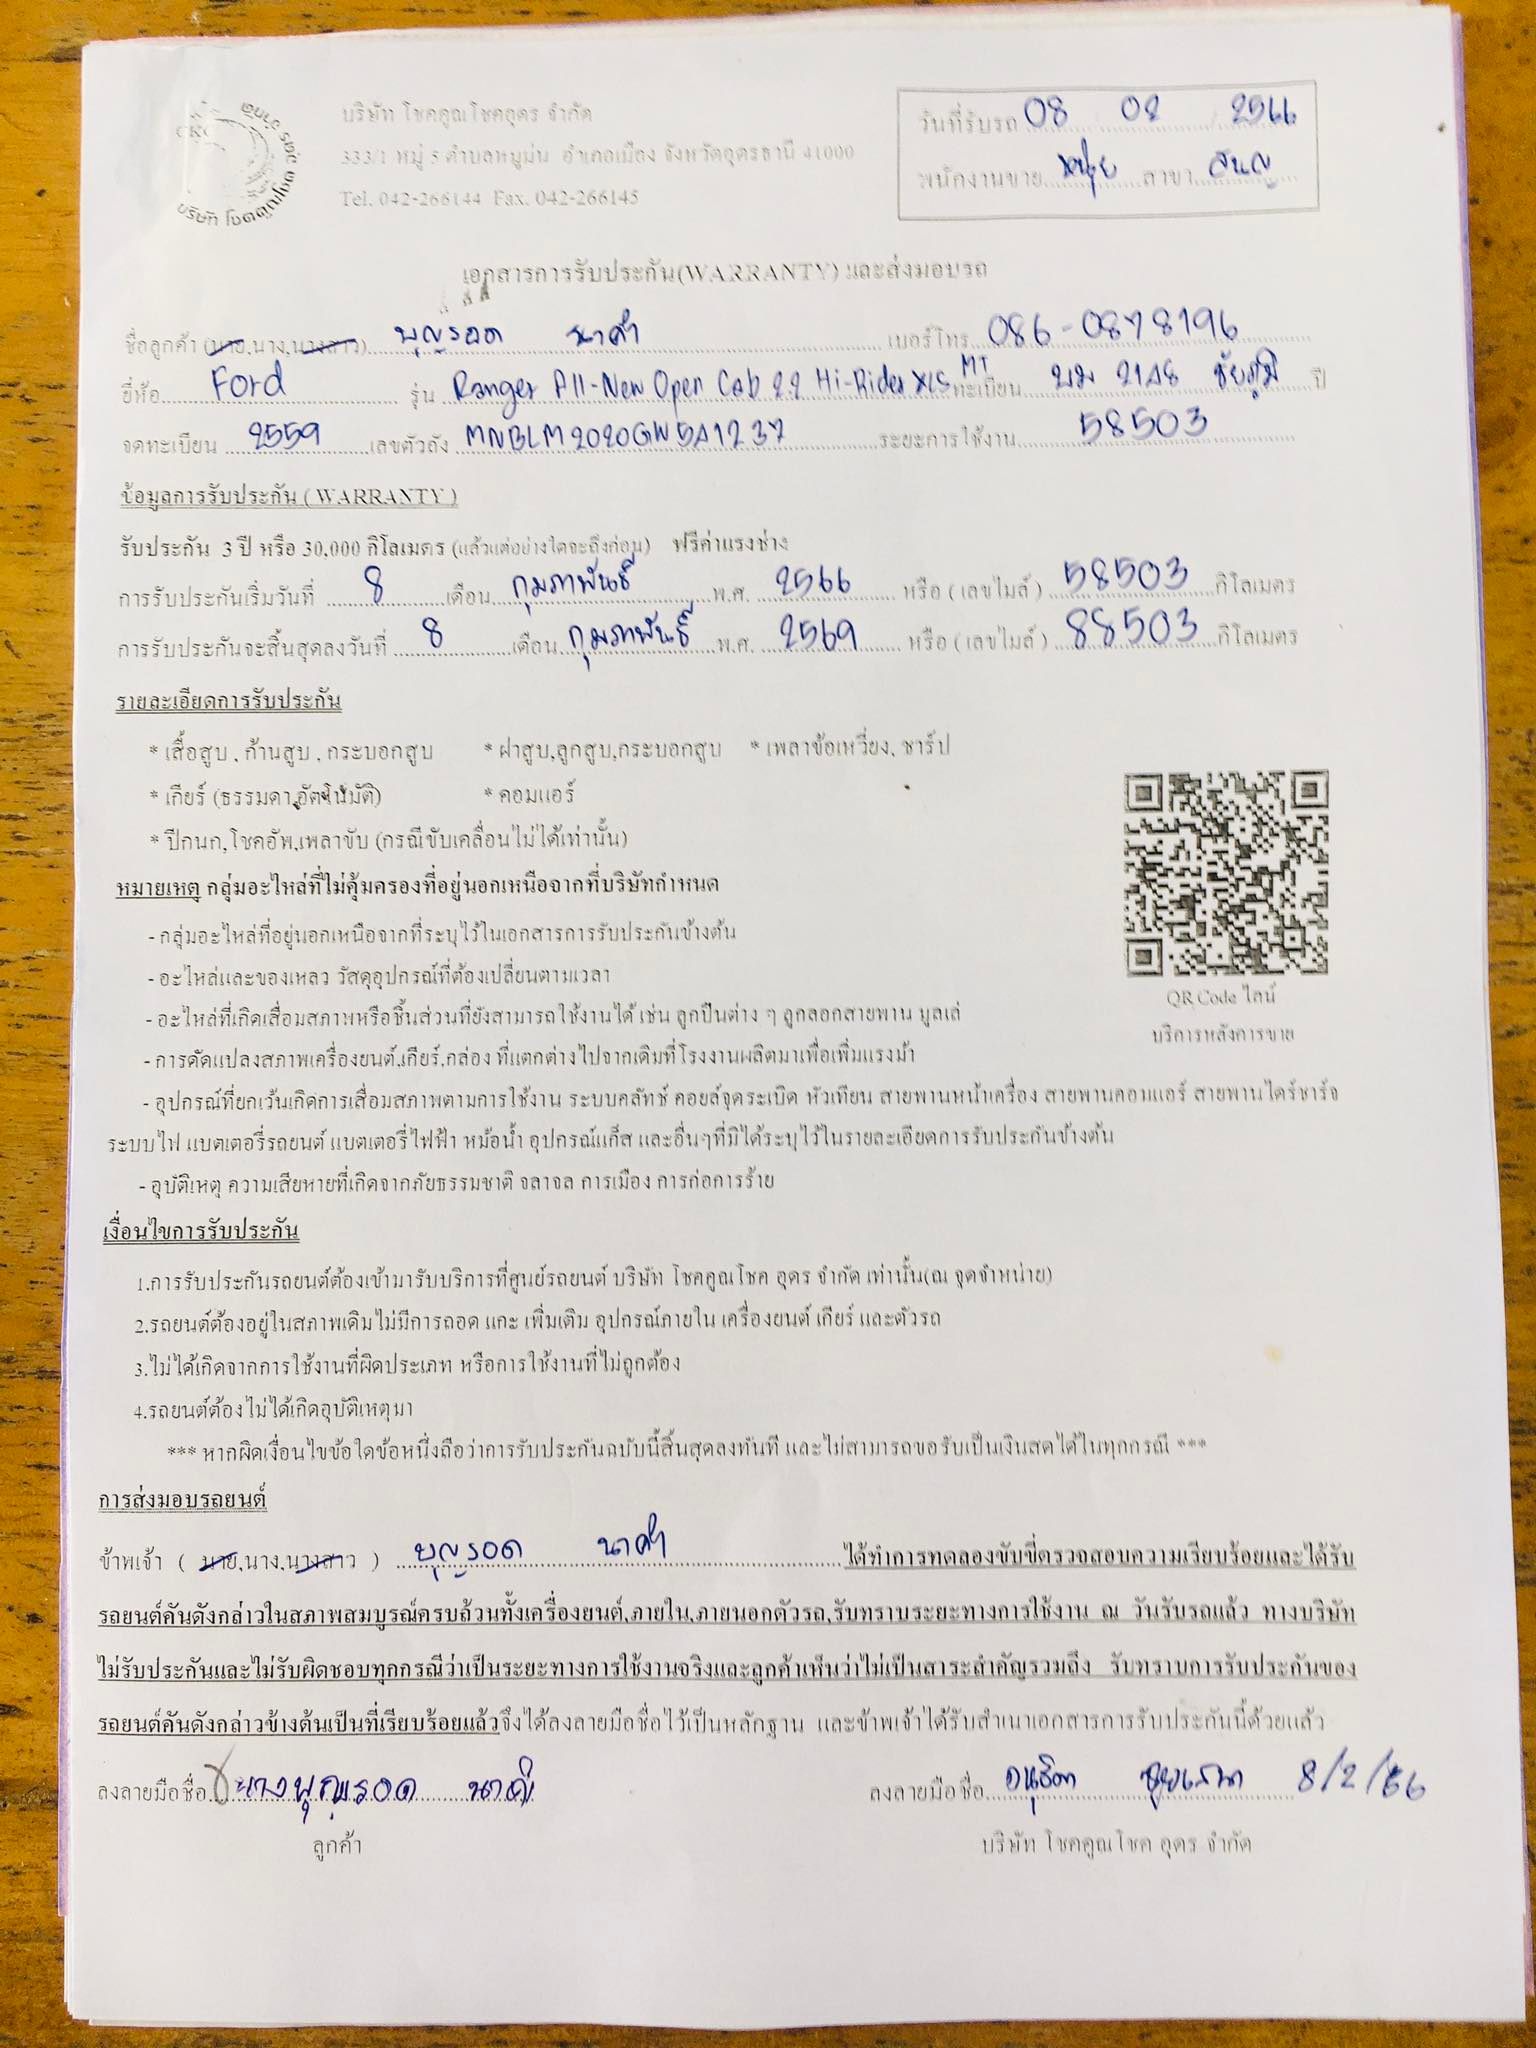 บริษัท โชคคูณโชคอุดร จำกัด
333/1 หมู่ 5 ตำบลหมูม่น อำเภอเมือง จังหวัดอุดรธานี 41000
Tel. 042-266144 Fax. 042-266145
วันที่รับรถ 08 02 2566
พนักงานขาย สาขา
เอกสารการรับประกัน(WARRANTY) และส่งมอบรถ
ชื่อลูกค้า (นาย,นาง,นางสาว) บุญรอด นาคำ เบอร์โทร 086-0878196
ยี่ห้อ Ford รุ่น Ranger All-New Open Cab 2.2 Hi-Rider XLS MT ทะเบียน บม 2148 ชัยภูมิ ปี
จดทะเบียน 2559 เลขตัวถัง ระยะการใช้งาน 58503
ข้อมูลการรับประกัน ( WARRANTY )
รับประกัน 3 ปี หรือ 30,000 กิโลเมตร (แล้วแต่อย่างใดจะถึงก่อน) ฟรีค่าแรงช่าง
การรับประกันเริ่มวันที่ 8 เดือน กุมภาพันธ์ พ.ศ. 2566 หรือ ( เลขไมล์ ) 58503 กิโลเมตร
การรับประกันจะสิ้นสุดลงวันที่ 8 เดือน กุมภาพันธ์ พ.ศ. 2569 หรือ ( เลขไมล์ ) 88503 กิโลเมตร
รายละเอียดการรับประกัน
* เสื้อสูบ , ก้านสูบ , กระบอกสูบ * ฝาสูบ,ลูกสูบ,กระบอกสูบ * เพลาข้อเหวี่ยง, ชาร์ป
* เกียร์ (ธรรมดา,อัตโนมัติ) * คอมแอร์
* ปีกนก,โชคอัพ,เพลาขับ (กรณีขับเคลื่อนไม่ได้เท่านั้น)
หมายเหตุ กลุ่มอะไหล่ที่ไม่คุ้มครองที่อยู่นอกเหนือจากที่บริษัทกำหนด
- กลุ่มอะไหล่ที่อยู่นอกเหนือจากที่ระบุไว้ในเอกสารการรับประกันข้างต้น
- อะไหล่และของเหลว วัสดุอุปกรณ์ที่ต้องเปลี่ยนตามเวลา
QR Code ไลน์
- อะไหล่ที่เกิดเสื่อมสภาพหรือชิ้นส่วนที่ยังสามารถใช้งานได้ เช่น ลูกปืนต่าง ๆ ลูกลอกสายพาน มูลเล่
บริการหลังการขาย
- การดัดแปลงสภาพเครื่องยนต์,เกียร์,กล่อง ที่แตกต่างไปจากเดิมที่โรงงานผลิตมาเพื่อเพิ่มแรงม้า
- อุปกรณ์ที่ยกเว้นเกิดการเสื่อมสภาพตามการใช้งาน ระบบคลัทช์ คอยล์จุดระเบิด หัวเทียน สายพานหน้าเครื่อง สายพานคอมแอร์ สายพานไดร์ชาร์จ
ระบบไฟ แบตเตอรี่รถยนต์ แบตเตอรี่ไฟฟ้า หม้อน้ำ อุปกรณ์แก็ส และอื่นๆที่มิได้ระบุไว้ในรายละเอียดการรับประกันข้างต้น
- อุบัติเหตุ ความเสียหายที่เกิดจากภัยธรรมชาติ จลาจล การเมือง การก่อการร้าย
เงื่อนไขการรับประกัน
1.การรับประกันรถยนต์ต้องเข้ามารับบริการที่ศูนย์รถยนต์ บริษัท โชคคูณโชค อุดร จำกัด เท่านั้น(ณ จุดจำหน่าย)
2.รถยนต์ต้องอยู่ในสภาพเดิมไม่มีการถอด แกะ เพิ่มเติม อุปกรณ์ภายใน เครื่องยนต์ เกียร์ และตัวรถ
3.ไม่ได้เกิดจากการใช้งานที่ผิดประเภท หรือการใช้งานที่ไม่ถูกต้อง
4.รถยนต์ต้องไม่ได้เกิดอุบัติเหตุมา
*** หากผิดเงื่อนไขข้อใดข้อหนึ่งถือว่าการรับประกันฉบับนี้สิ้นสุดลงทันที และไม่สามารถขอรับเป็นเงินสดได้ในทุกกรณี ***
การส่งมอบรถยนต์
ข้าพเจ้า ( นาย,นาง,นางสาว ) บุญรอด นาคำ ได้ทำการทดลองขับขี่ตรวจสอบความเรียบร้อยและได้รับ
รถยนต์คันดังกล่าวในสภาพสมบูรณ์ครบถ้วนทั้งเครื่องยนต์,ภายใน,ภายนอกตัวรถ,รับทราบระยะทางการใช้งาน ณ วันรับรถแล้ว ทางบริษัท
ไม่รับประกันและไม่รับผิดชอบทุกกรณีว่าเป็นระยะทางการใช้งานจริงและลูกค้าเห็นว่าไม่เป็นสาระสำคัญรวมถึง รับทราบการรับประกันของ
รถยนต์คันดังกล่าวข้างต้นเป็นที่เรียบร้อยแล้วจึงได้ลงลายมือชื่อไว้เป็นหลักฐาน และข้าพเจ้าได้รับสำเนาเอกสารการรับประกันนี้ด้วยแล้ว
ลงลายมือชื่อ นางบุญรอด นาคำ ลงลายมือชื่อ 8/2/66
ลูกค้า บริษัท โชคคูณโชค อุดร จำกัด